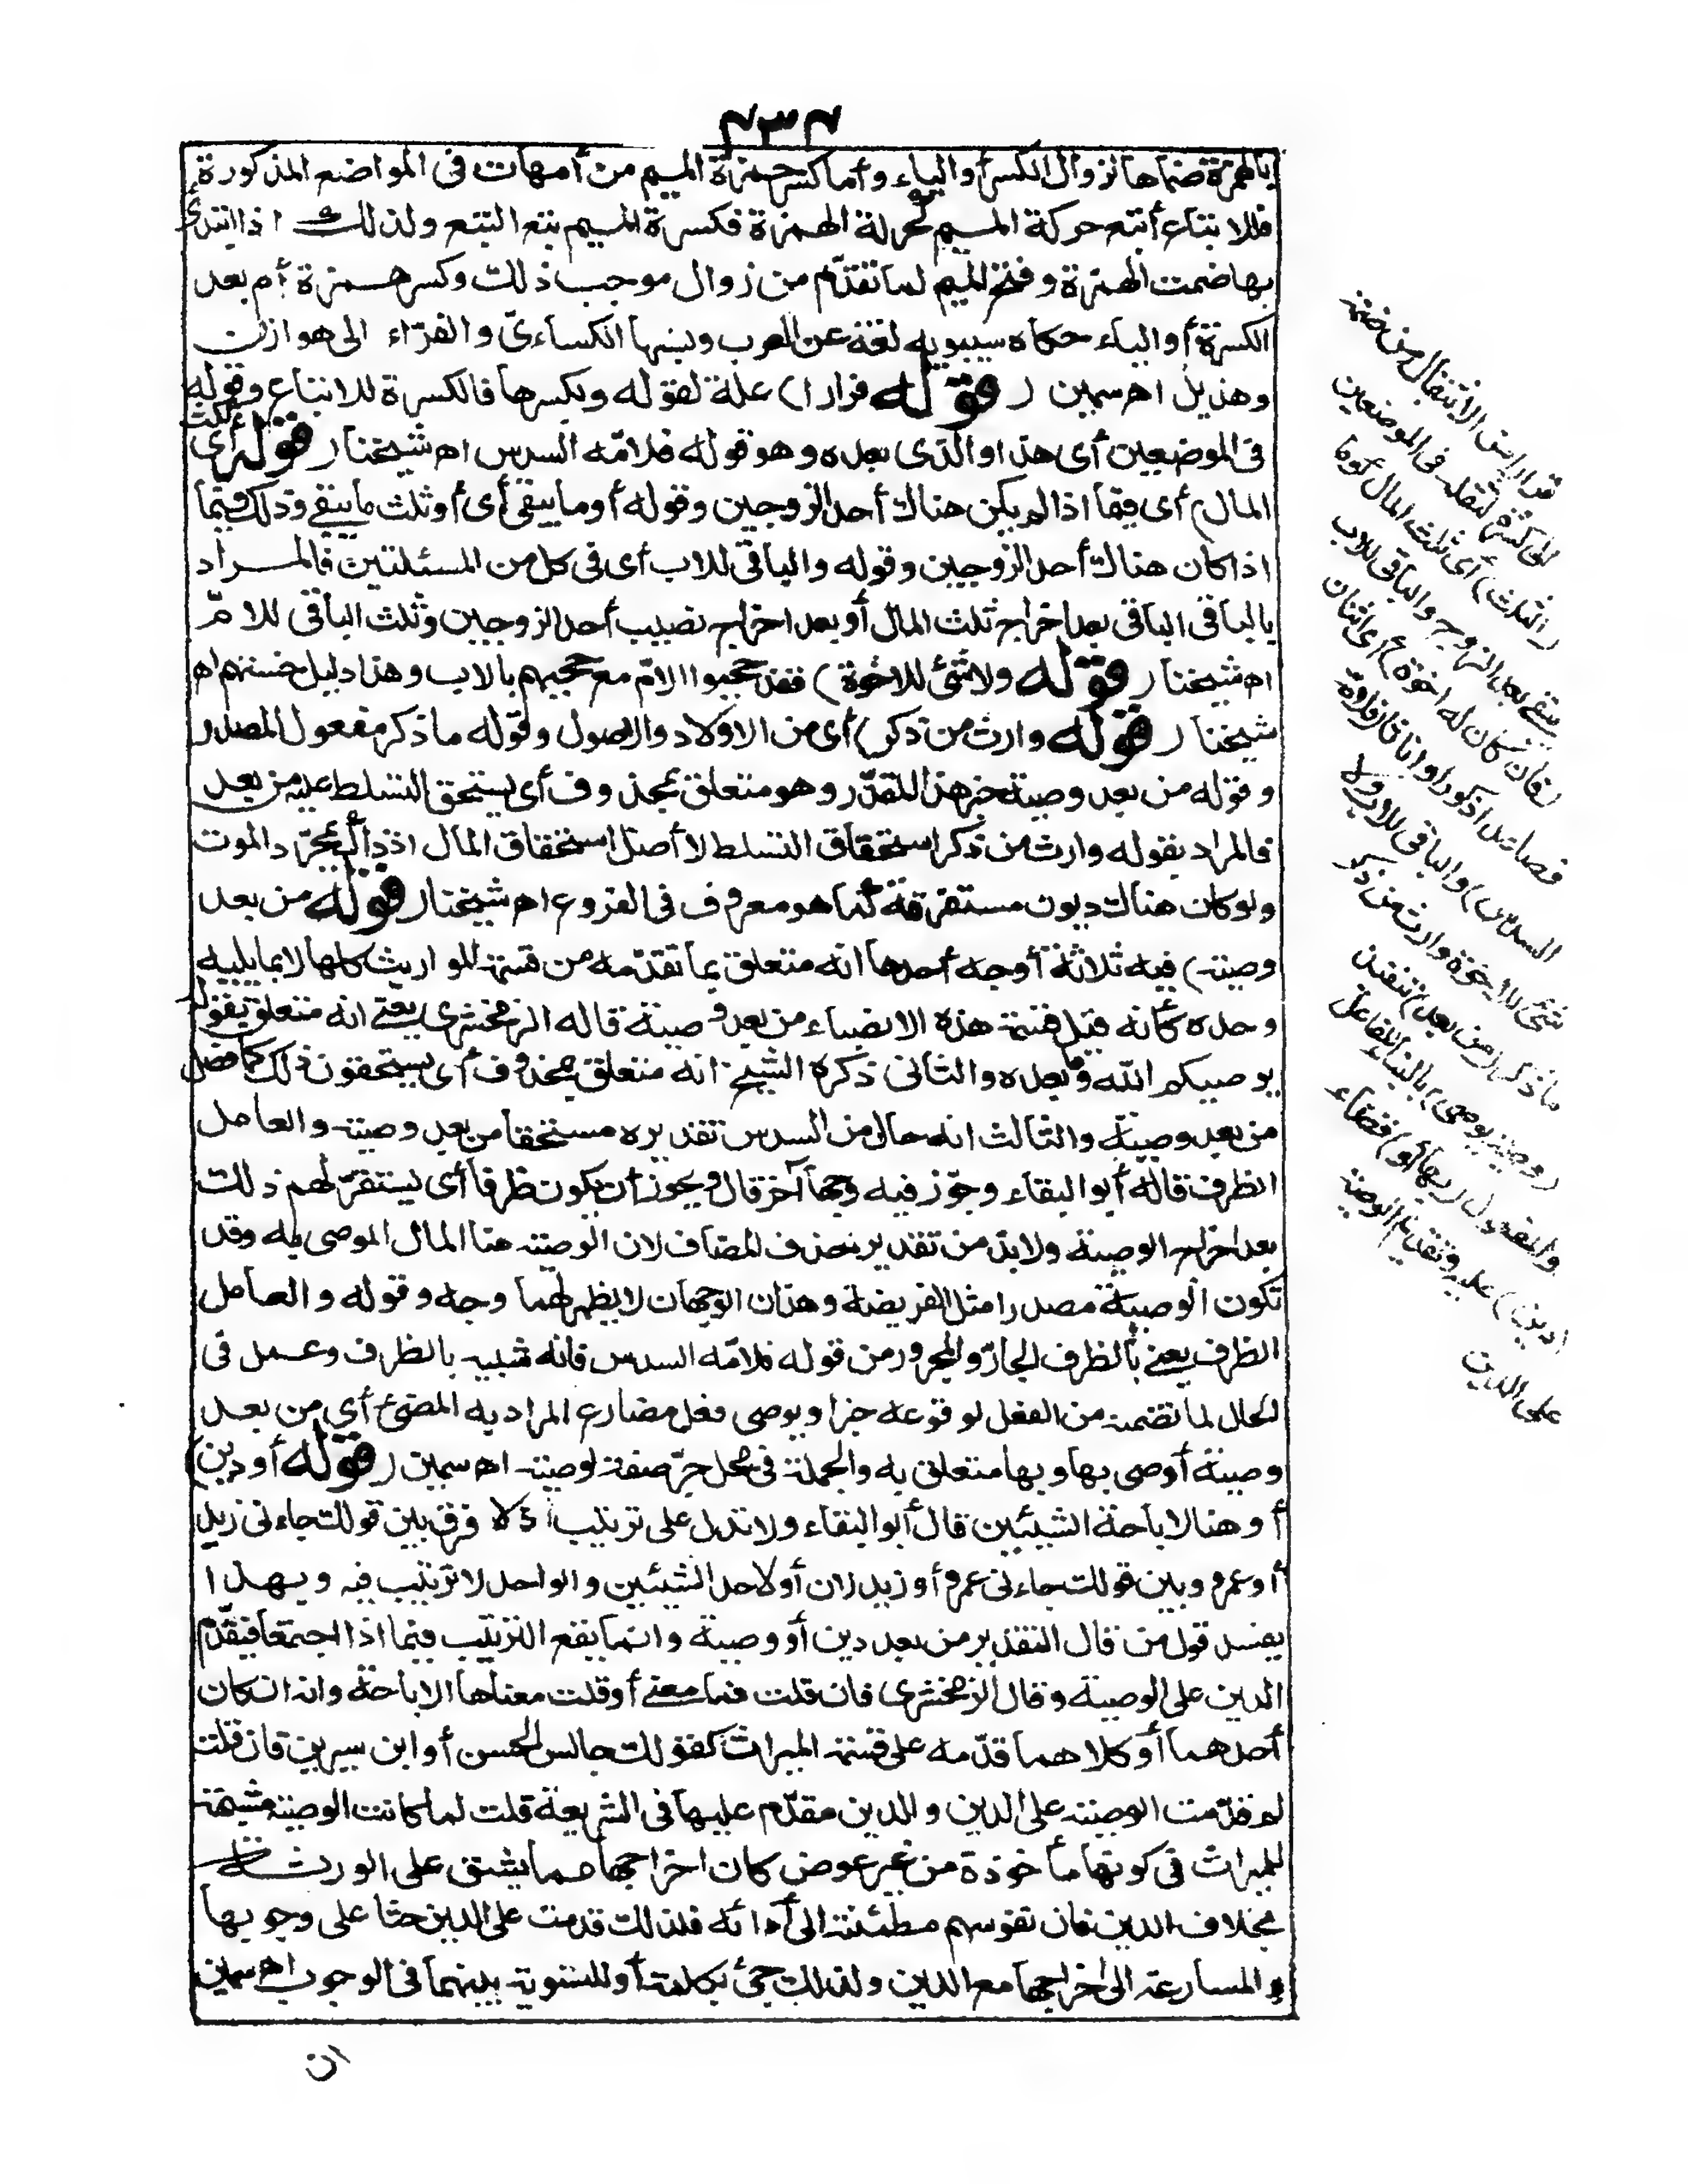 ٤٣٤
بالهمزة ضماها لزوال الكسر أو الياء وأما كسر حمزة الميم من أمهات في المواضع المذكورة
فللاتباع أتبع حركة الميم لحركة الهمزة فكسرة الميم تبع التبع ولذلك اذا ابتدئ
بها ضمت الهمزة وفتح الميم لما تقدّم من زوال موجب ذلك وكسر همزة أم بعد
الكسرة أو الياء حكاه سيبويه لغة عن العرب ونسبها الكسائيّ والفرّاء الى هوازن
وهذيل اه سمين (قوله فرارا) علة لقوله وبكسرها فالكسرة للاتباع وقوله
في الموضعين أي هذا والذي بعده وهو قوله فلامّه السدس اه شيخنا (قوله أي ثلث
المال) أي فيما اذا لم يكن هناك أحد الزوجين وقوله أو ما يبقى أي أو ثلث ما يبقى وذلك فيما
اذا كان هناك أحد الزوجين وقوله والباقي للاب أي في كل من المسئلتين فالمراد
بالباقي الباقي بعد اخراج ثلث المال أو بعد اخراج نصيب أحد الزوجين وثلث الباقي للامّ
اه شيخنا (قوله ولا شئ للاخوة) فقد حجبوا الامّ مع حجبهم بالاب وهذا دليل خستهم اه
شيخنا (قوله وارث من ذكر) أي من الاولاد والاصول وقوله ما ذكر مفعول المصدر
وقوله من بعد وصية خبر هذا المقدّر وهو متعلق بمحذوف أي يستحق التسلط عليه من بعد
فالمراد بقوله وارث من ذكر استحقاق التسلط لا أصل استحقاق المال اذ ذاك بمجرّد الموت
ولو كان هناك ديون مستغرقة كما هو معروف في الفروع اه شيخنا (قوله من بعد
وصية) فيه ثلاثة أوجه أحدها انه متعلق بما تقدّمه من قسمة المواريث كلها لا بما يليه
وحده كأنه قيل قسمة هذه الانصباء من بعد وصية قاله الزمخشري يعني انه متعلق بقوله
يوصيكم الله وما بعده والثاني ذكره الشيخ انه متعلق بمحذوف أي يستحقون ذلك كما فصل
من بعد وصية والثالث انه حال من السدس تقديره مستحقا من بعد وصية والعامل
الظرف قاله أبو البقاء وجوّز فيه وجها آخر قال ويجوز أن يكون ظرفا أي يستقرّ لهم ذلك
بعد اخراج الوصية ولا بدّ من تقدير حذف المضاف لان الوصية هنا المال الموصى به وقد
تكون الوصية مصدرا مثل الفريضة وهذان الوجهان لا يظهر لهما وجه وقوله والعامل
الظرف يعني بالظرف الجارّ والمجرور من قوله فلامّه السدس فانه شبيه بالظرف وعمل في
الحال لما تضمنه من الفعل لوقوعه خبرا ويوصى فعل مضارع المراد به المضيّ أي من بعد
وصية أوصى بها وبها متعلق به والجملة في محل جرّ صفة لوصية اه سمين (قوله أو دين)
أو هنا لاباحة الشيئين قال أبو البقاء ولا تدل على ترتيب اذ لا فرق بين قولك جاءني زيد
أو عمرو وبين قولك جاءني عمرو أو زيد لان أو لاحد الشيئين والواحد لا ترتيب فيه وبهذا
يفسد قول من قال التقدير من بعد دين أو وصية وانما يقع الترتيب فيما اذا اجتمعا فيقدّم
الدين على الوصية وقال الزمخشري فان قلت فما معنى أو قلت معناها الاباحة وانه ان كان
أحدهما أو كلاهما قدّمه على قسمة الميراث كقولك جالس الحسن أو ابن سيرين فان قلت
لم قدّمت الوصية على الدين والدين مقدّم عليها في الشريعة قلت لما كانت الوصية مشبهة
للميراث في كونها مأخوذة من غير عوض كان اخراجها مما يشق على الورثة
بخلاف الدين فان نفوسهم مطمئنة الى أدائه فلذلك قدمت على الدين حثا على وجوبها
والمسارعة الى اخراجها مع الدين ولذلك جئ بكلمة أو للتسوية بينهما في الوجوب اه سمين
ان
فرارا من الانتقال من ضمة
الى كسرة لثقله في الموضعين
(الثلث) أي ثلث المال أو ما
يبقى بعد الزوج والباقي للاب
(فان كان له اخوة) أي اثنان
فصاعدا ذكورا أو اناثا (فلامّه
السدس) والباقي للاب ولا
شئ للاخوة وارث من ذكر
ما ذكر (من بعد) تنفيذ
(وصية يوصى) بالبناء للفاعل
والمفعول (بها أو) قضاء
(دين) عليه وتقديم الوصية
على الدين